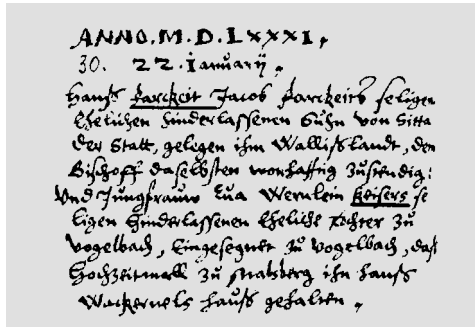 ANNO. M. D. LXXXI.
30. 22. Januarÿ.
Hanß Harckeit Jacob Harckeits seligen
Ehelichen hinderlassenen Suhn von Sitta
der Statt, gelegen ihm Wallißlandt, den
Bischoff daselbsten wonhafftig zustendig:
Und Jungfrauw Eua Wernlein Keisers se
ligen hinderlassenen Eheliche Tochter zu
Vogelbach, Eingesegnet zu Vogelbach, daß
Hochzeitmall zu Malsberg ihn Hanß
Wackernels Hauß gehalten.